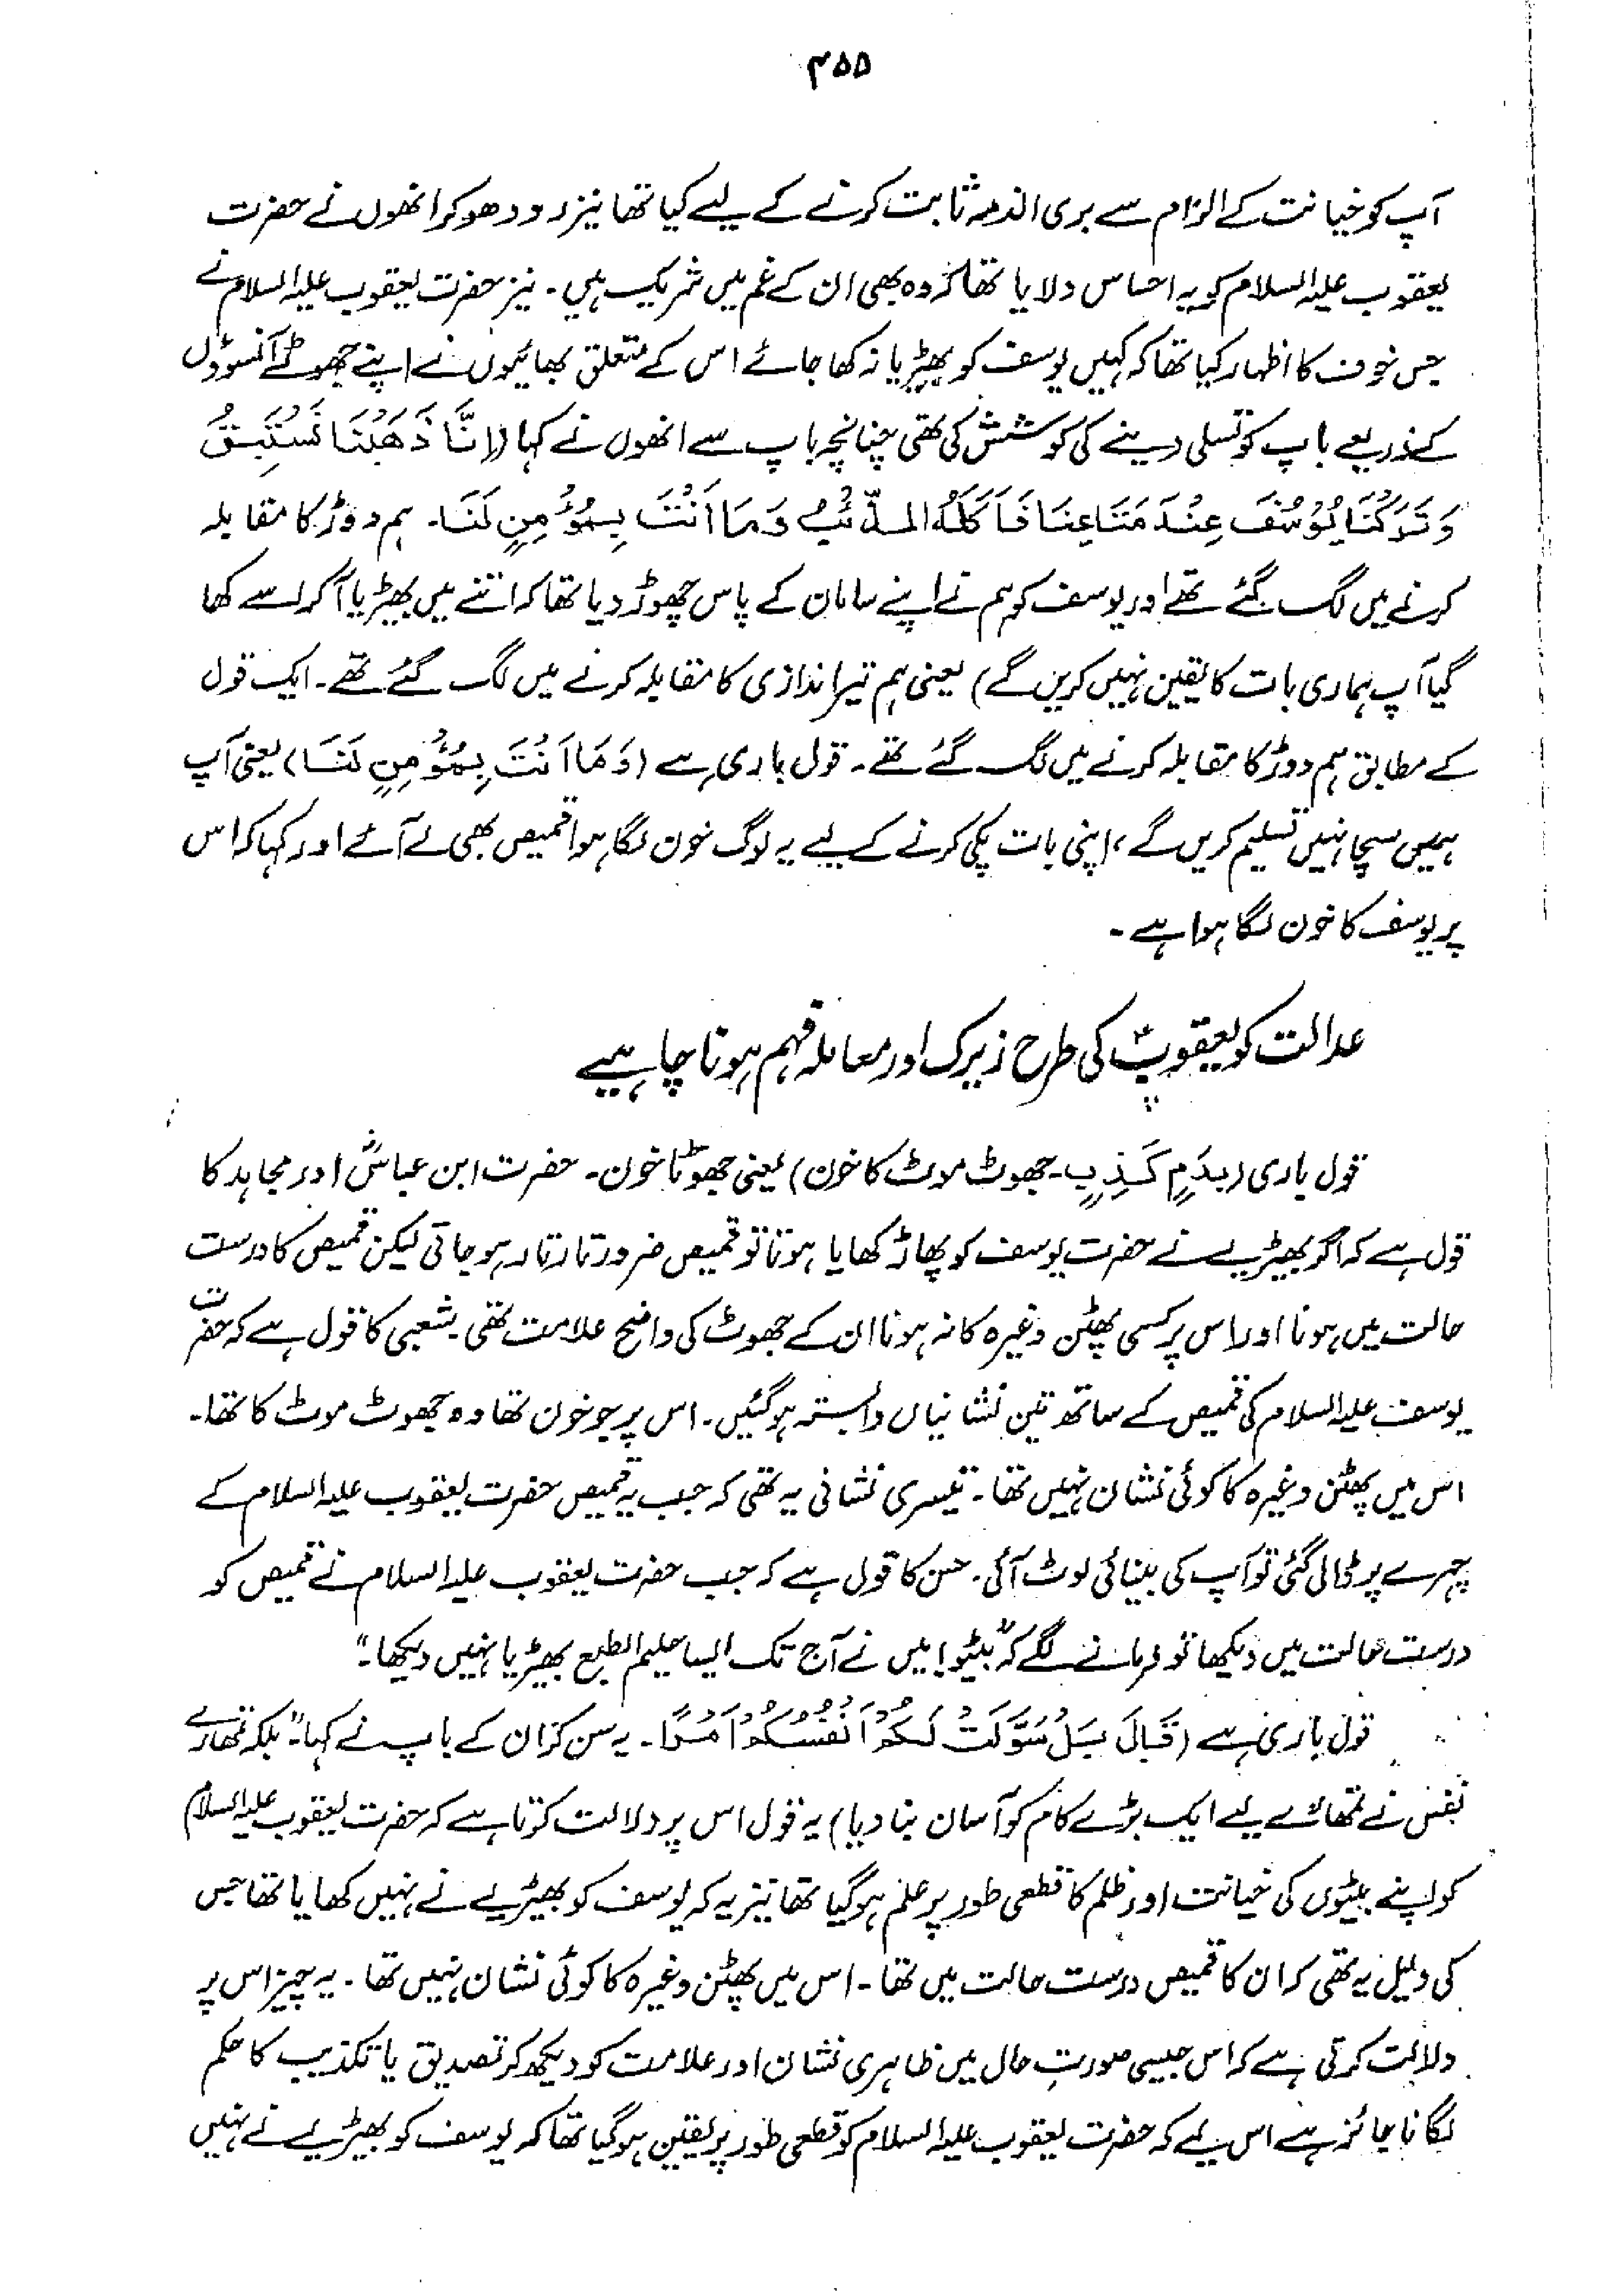 ۴۵۵
آپ کو خیانت کے الزام سے بری الذمہ ثابت کرنے کے لیے کیا تھا نیز رو دھو کر انھوں نے حضرت
یعقوب علیہ السلام کو یہ احساس دلایا تھا کہ وہ بھی ان کے غم میں شریک ہیں۔ نیز حضرت یعقوب علیہ السلام نے
جس خوف کا اظہار کیا تھا کہ کہیں یوسف کو بھیڑیا نہ کھا جائے اس کے متعلق بھائیوں نے اپنے جھوٹے آنسوؤں
کے ذریعے باپ کو تسلی دینے کی کوشش کی تھی چنانچہ باپ سے انھوں نے کہا (اِنَّا ذَھَبْنَا نَسْتَبِقُ
وَتَرَكْنَا يُوْسُفَ عِنْدَ مَتَاعِنَا فَاَكَلَهُ الذِّئْبُ وَمَا اَنْتَ بِمُؤْمِنٍ لَنَا۔ ہم دوڑ کا مقابلہ
کرنے میں لگ گئے تھے اور یوسف کو ہم نے اپنے سامان کے پاس چھوڑ دیا تھا کہ اتنے میں بھیڑیا آ کر اسے کھا
گیا آپ ہماری بات کا یقین نہیں کریں گے) یعنی ہم تیر اندازی کا مقابلہ کرنے میں لگ گئے تھے۔ ایک قول
کے مطابق ہم دوڑ کا مقابلہ کرنے میں لگ گئے تھے۔ قول باری ہے (وَمَا اَنْتَ بِمُؤْمِنٍ لَنَا) یعنی آپ
ہمیں سچا نہیں تسلیم کریں گے، اپنی بات پکی کرنے کے لیے یہ لوگ خون لگا ہوا قمیص بھی لے آئے اور کہا کہ اس
پر یوسف کا خون لگا ہوا ہے۔
عدالت کو یعقوبؑ کی طرح زیرک اور معاملہ فہم ہونا چاہیے
قول باری (بِدَمٍ كَذِبٍ۔ جھوٹ موٹ کا خون) یعنی جھوٹا خون۔ حضرت ابن عباسؓ اور مجاہد کا
قول ہے کہ اگر بھیڑیے نے حضرت یوسف کو پھاڑ کھایا ہوتا تو قمیص ضرور تار تار ہو جاتی لیکن قمیص کا درست
حالت میں ہونا اور اس پر کسی پھٹن وغیرہ کا نہ ہونا ان کے جھوٹ کی واضح علامت تھی۔ شعبی کا قول ہے کہ حضرت
یوسف علیہ السلام کی قمیص کے ساتھ تین نشانیاں وابستہ ہو گئیں۔ اس پر جو خون تھا وہ جھوٹ موٹ کا تھا۔
اس میں پھٹن وغیرہ کا کوئی نشان نہیں تھا۔ تیسری نشانی یہ تھی کہ جب یہ قمیص حضرت یعقوب علیہ السلام کے
چہرے پر ڈالی گئی تو آپ کی بینائی لوٹ آئی۔ حسن کا قول ہے کہ جب حضرت یعقوب علیہ السلام نے قمیص کو
درست حالت میں دیکھا تو فرمانے لگے کہ "بیٹو! میں نے آج تک ایسا حلیم الطبع بھیڑیا نہیں دیکھا۔"
قول باری ہے (قَالَ بَلْ سَوَّلَتْ لَكُمْ اَنْفُسُكُمْ اَمْرًا۔ یہ سن کر ان کے باپ نے کہا۔" بلکہ تمھارے
نفس نے تمھارے لیے ایک بڑے کام کو آسان بنا دیا) یہ قول اس پر دلالت کرتا ہے کہ حضرت یعقوب علیہ السلام
کو اپنے بیٹوں کی خیانت اور ظلم کا قطعی طور پر علم ہو گیا تھا نیز یہ کہ یوسف کو بھیڑیے نے نہیں کھایا تھا جس
کی دلیل یہ تھی کہ ان کا قمیص درست حالت میں تھا۔ اس میں پھٹن وغیرہ کا کوئی نشان نہیں تھا۔ یہ چیز اس پر
دلالت کرتی ہے کہ اس جیسی صورتِ حال میں ظاہری نشان اور علامت کو دیکھ کر تصدیق یا تکذیب کا حکم
لگانا جائز ہے اس لیے کہ حضرت یعقوب علیہ السلام کو قطعی طور پر یقین ہو گیا تھا کہ یوسف کو بھیڑیے نے نہیں